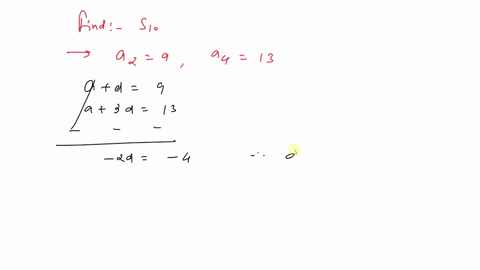 find:- S₁₀
→ a₂ = 9 , a₄ = 13
a + d = 9
a + 3d = 13
- - -
-2d = -4 ∴ d